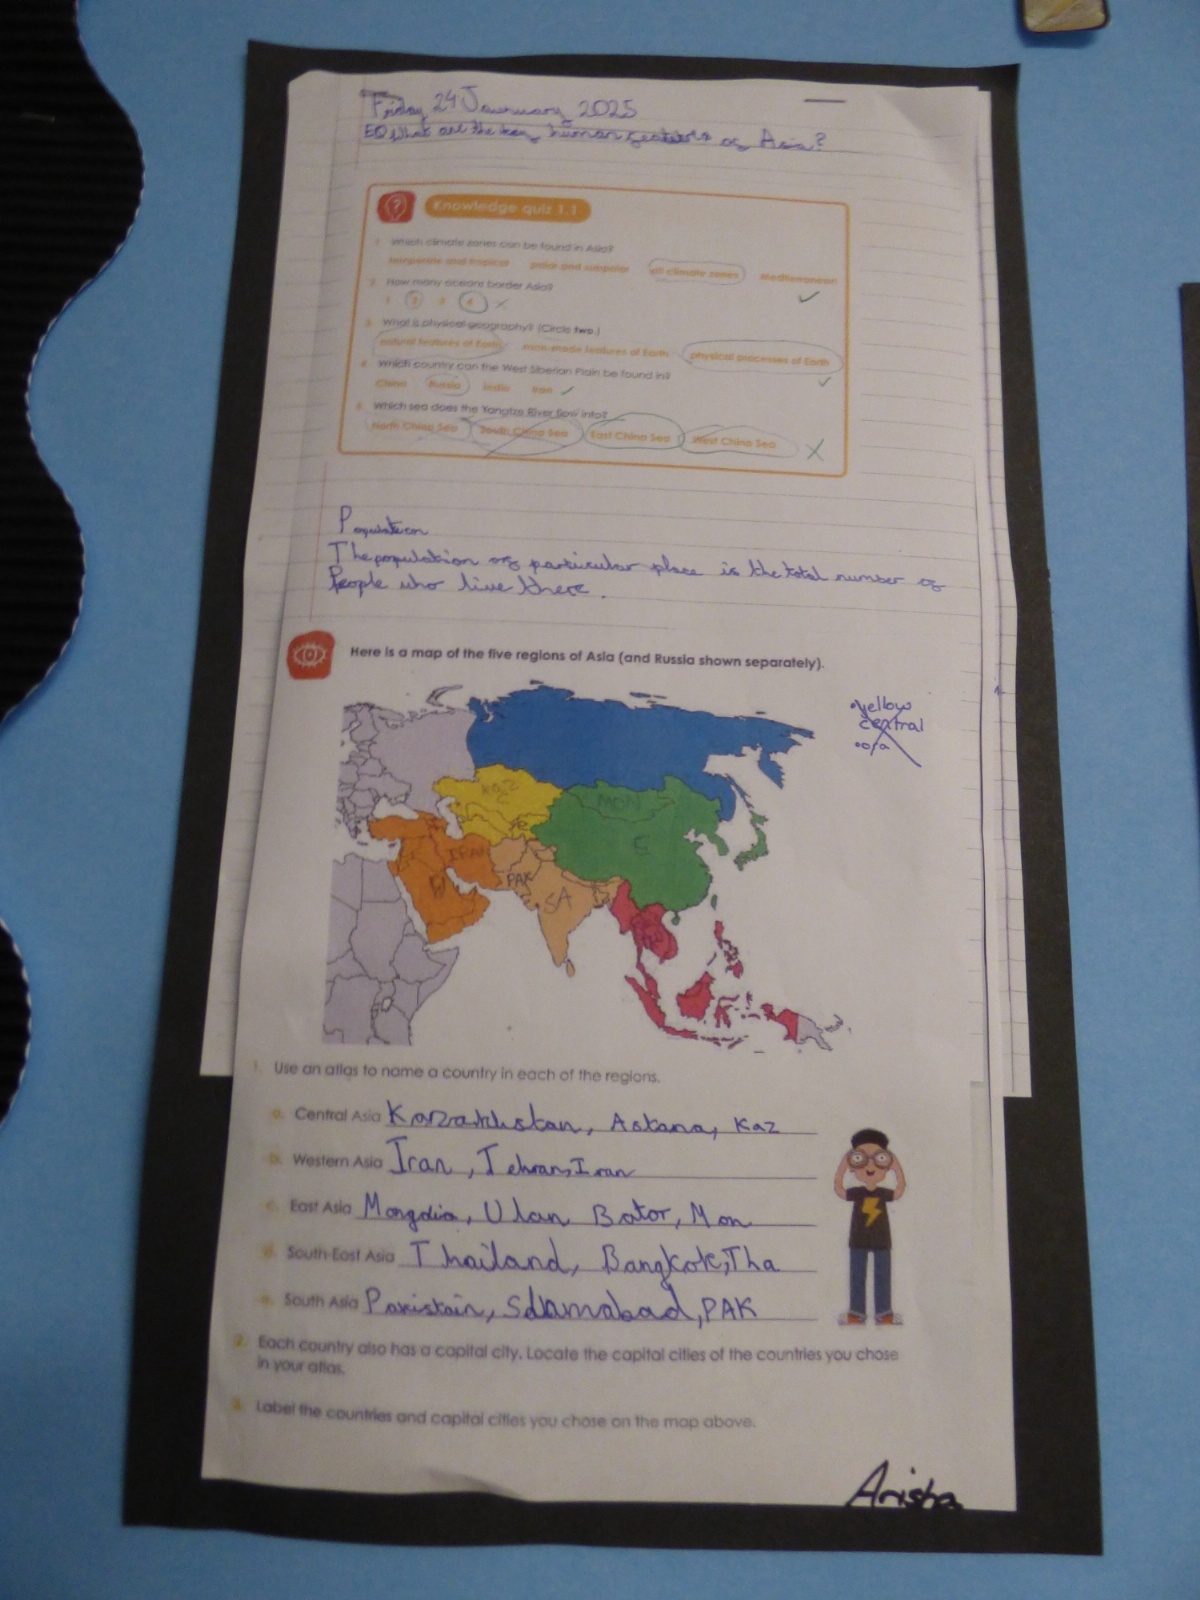 Friday 24 January 2025
EQ What are the key human features of Asia?
Knowledge quiz 1.1
1 Which climate zones can be found in Asia?
temperate and tropical polar and subpolar all climate zones Mediterranean
2 How many oceans border Asia?
1 2 3 4
3 What is physical geography? (Circle two.)
natural features of Earth man-made features of Earth physical processes of Earth
4 Which country can the West Siberian Plain be found in?
China Russia India Iran
5 Which sea does the Yangtze River flow into?
North China Sea South China Sea East China Sea West China Sea
Population
The population of particular place is the total number of
People who live there.
Here is a map of the five regions of Asia (and Russia shown separately).
yellow
central
KAZ
MON
E
IRAN
PAK
SA
1. Use an atlas to name a country in each of the regions.
a. Central Asia Kazakhstan, Astana, Kaz
b. Western Asia Iran, Tehran, Iran
c. East Asia Mongolia, Ulan Bator, Mon
d. South-East Asia Thailand, Bangkok, Tha
e. South Asia Pakistain, Islamabad, PAK
2. Each country also has a capital city. Locate the capital cities of the countries you chose
in your atlas.
3. Label the countries and capital cities you chose on the map above.
Arisha